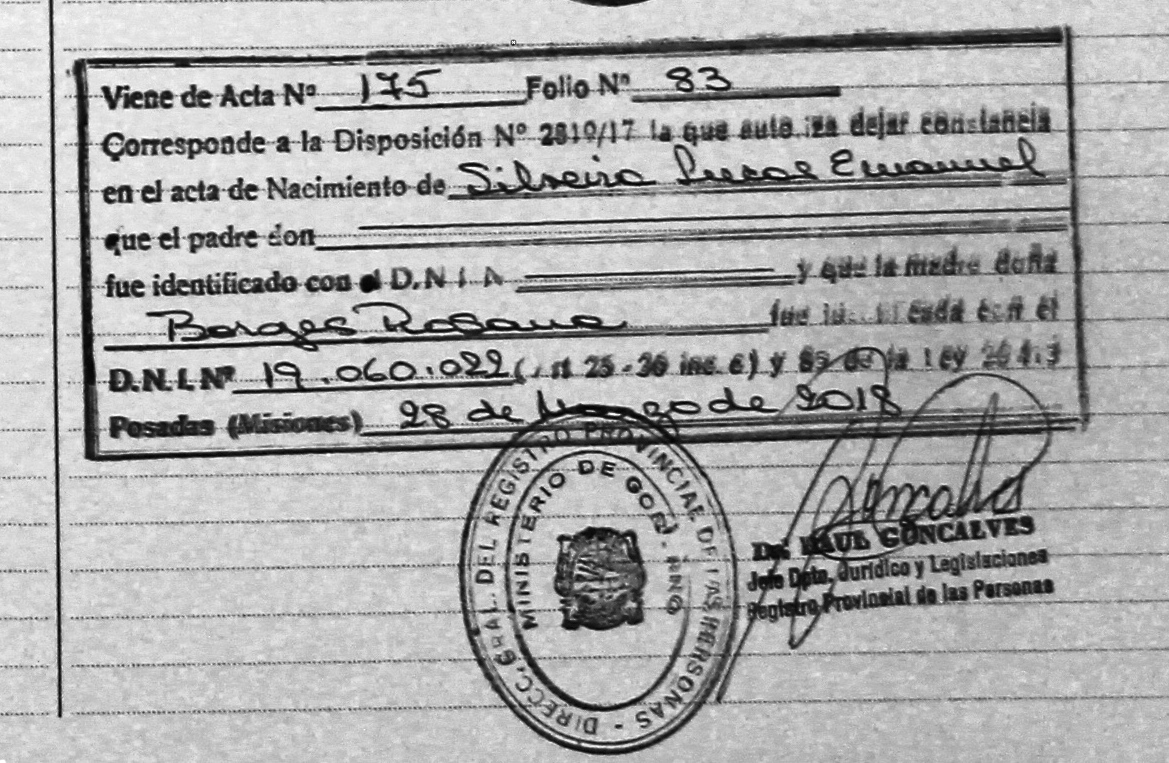 Viene de Acta Nº 175 Folio Nº 83
Corresponde a la Disposición Nº 2819/17 la que auto iza dejar constancia
en el acta de Nacimiento de Silveira Lucas Emanuel
que el padre don
fue identificado con el D.N.I. y que la madre doña
Borges Rosana fue con el
D.N.I. Nº 19.060.022 ( 25-36 inc. c) y 85 de la Ley
Posadas (Misiones) 28 de de 2018
DIRECC. GRAL. DEL REGISTRO PROVINCIAL DE LAS PERSONAS -
MINISTERIO DE GOBIERNO
Dr. RAUL GONCALVES
Jefe Dpto. Jurídico y Legislaciones
Registro Provincial de las Personas